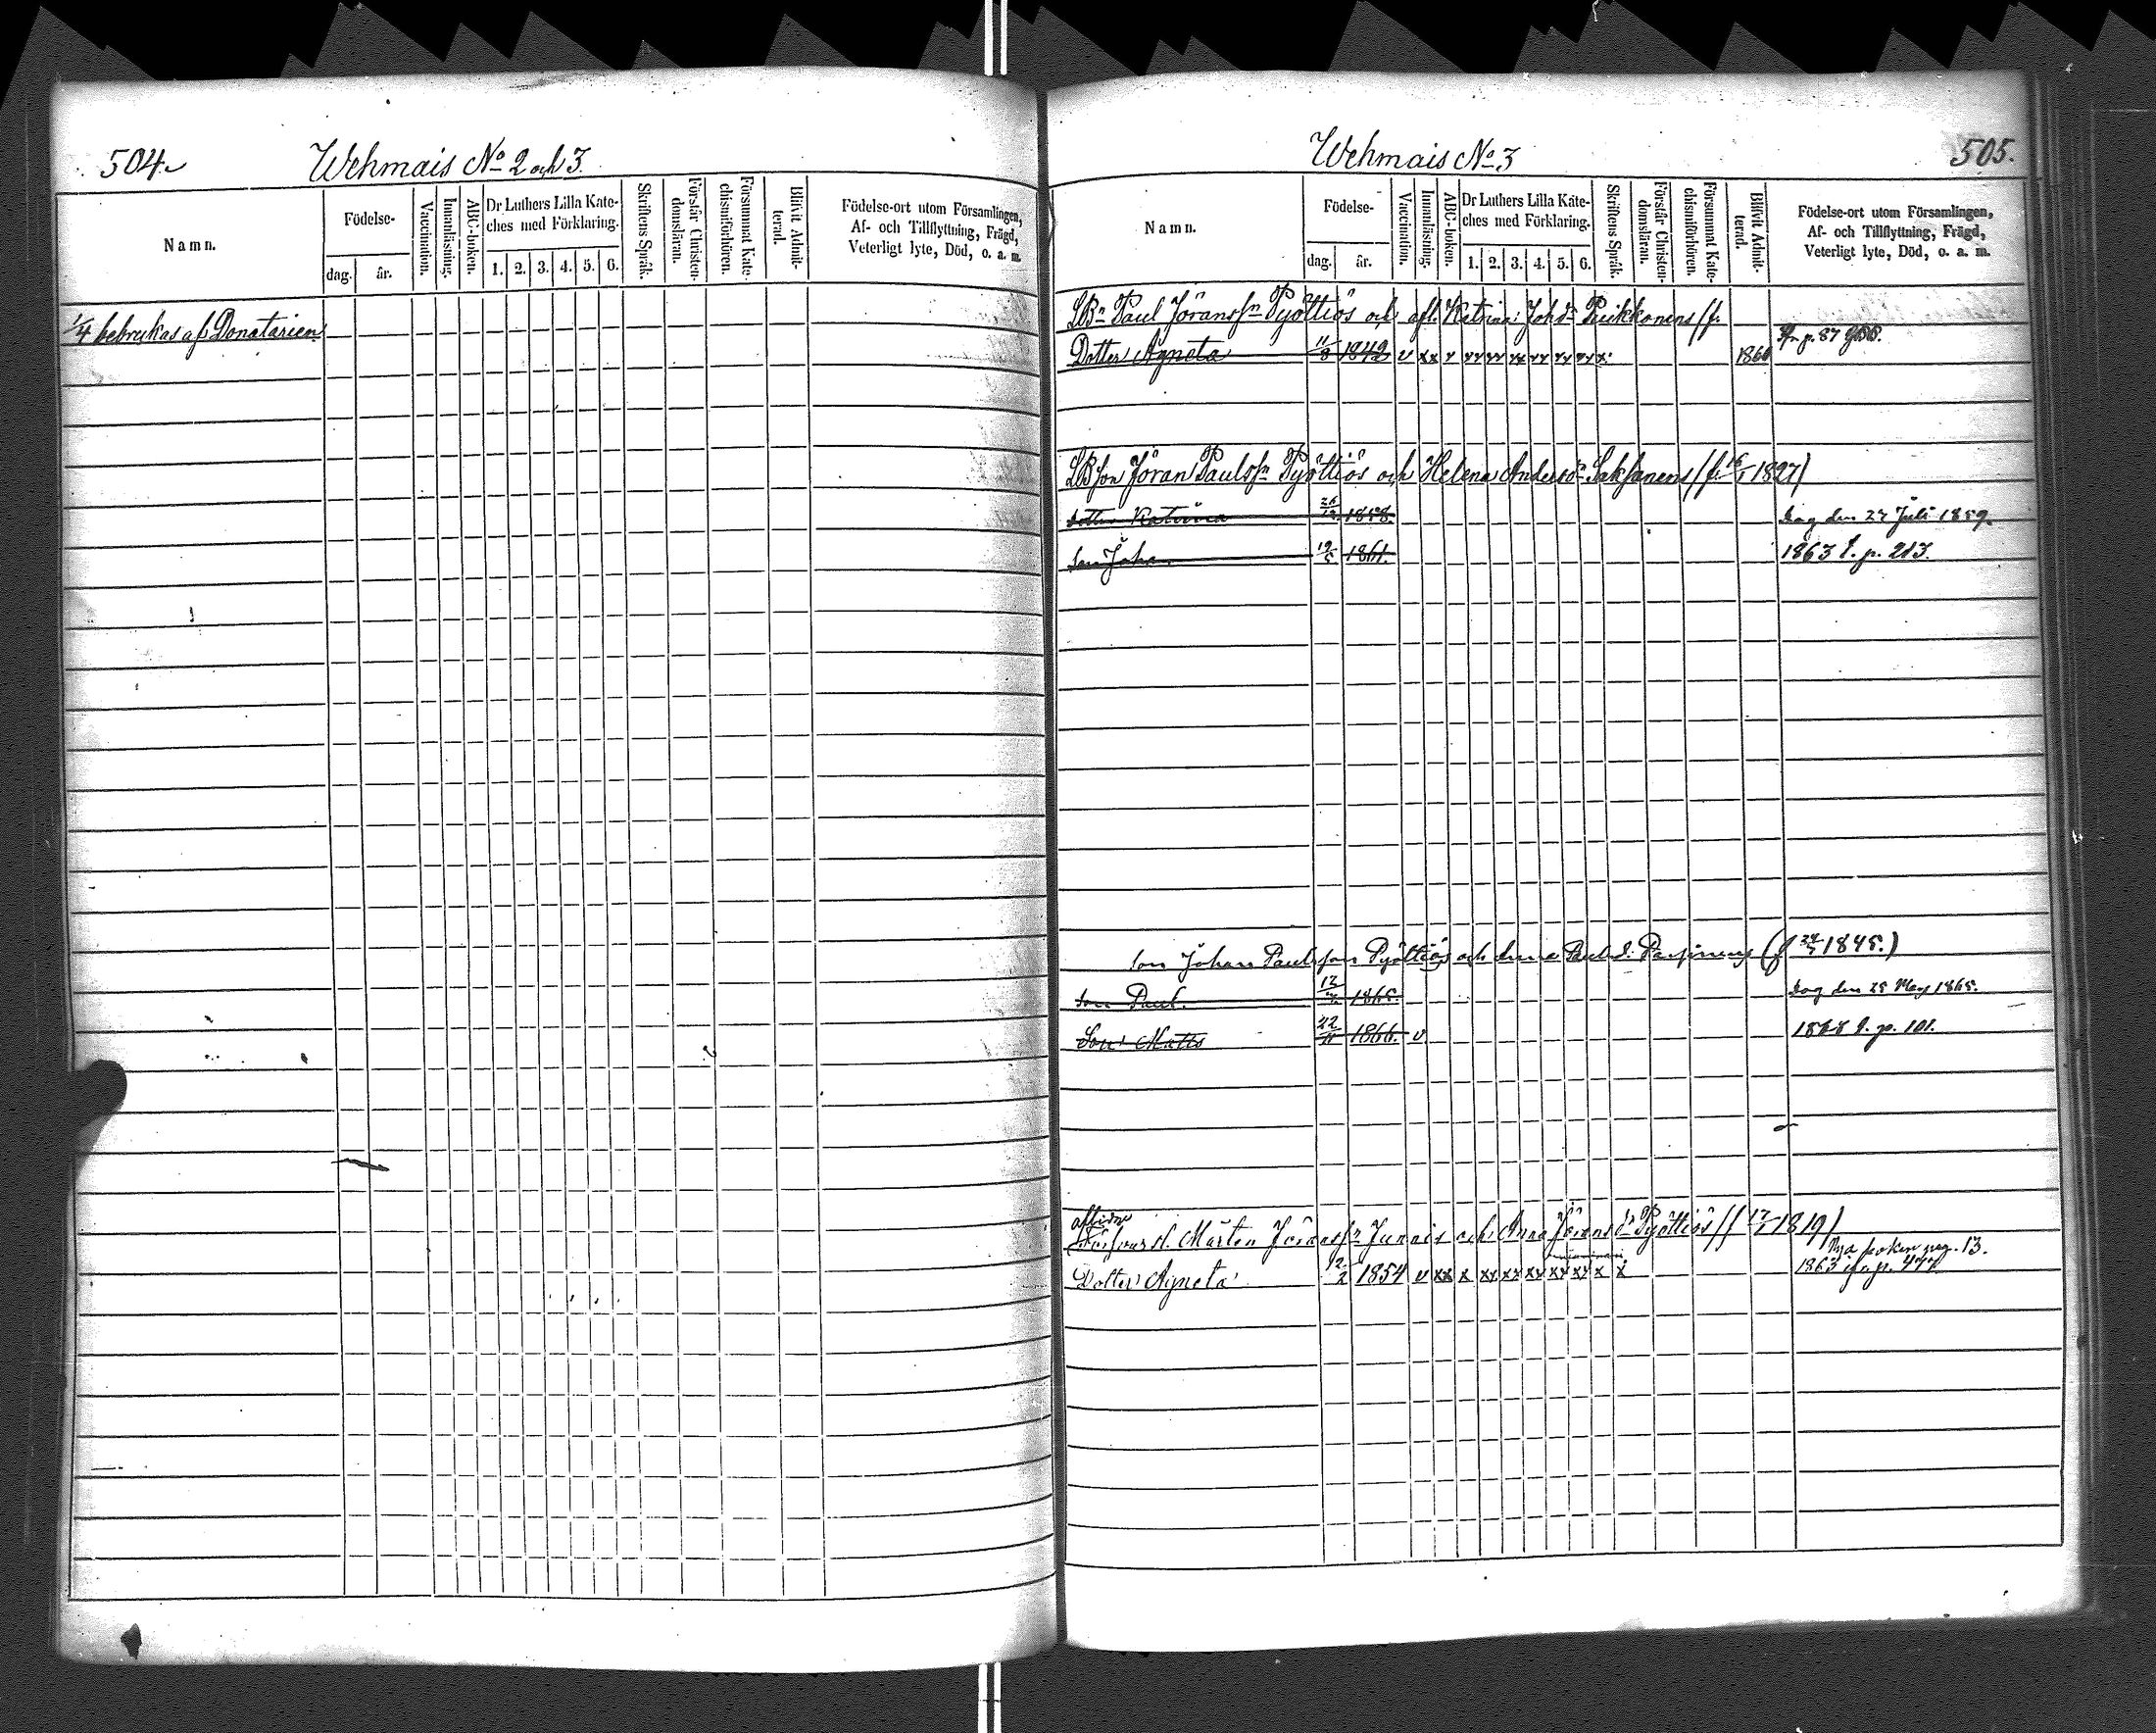 504.
Wehmais No 2 och 3.
Namn.
Födelse-
dag.
år.
Vaccination.
Innanläsning.
ABC-boken.
Dr Luthers Lilla Kate-
ches med Förklaring.
1. 2. 3. 4. 5. 6.
Skriftens Språk.
Förstår Christen-
domsläran.
Försummat Kate-
chismiförhören.
Blifvit Admit-
terad.
Födelse-ort utom Församlingen,
Af- och Tillflyttning, Frägd,
Veterligt lyte, Död, o. a. m.
1/4 bebrukas af Donatarien
Wehmais No 3
505.
Namn.
Födelse-
dag.
år.
Vaccination.
Innanläsning.
ABC-boken.
Dr Luthers Lilla Kate-
ches med Förklaring.
1. 2. 3. 4. 5. 6.
Skriftens Språk.
Förstår Christen-
domsläran.
Försummat Kate-
chismiförhören.
Blifvit Admit-
terad.
Födelse-ort utom Församlingen,
Af- och Tillflyttning, Frägd,
Veterligt lyte, Död, o. a. m.
LBn Paul Göranssn Pyöttiös och afl. Katrina Johsdr Puikkonens (f.
Dotter Agneta 11/8 1842 v xx v xx xx xx xx xx xx x 1860 p. 87
LBson Göran Paulssn Pyöttiös och Helena Andersdr Saksanens (f. 1827)
dotter Katrina 1858. dog den 27 Juli 1859.
son Johan 1861. 1863 p. 213.
son Johan Paulsson Pyöttiös och Anna Paulsd. (f 1845.)
son Paul. 12 1865. dog den 25 Maj 1865.
Son Matts 22 1866. v 1868 p. 101.
Mårten Göranssn Junnis och Anna Göransdr Pyöttiös (f 17 1819)
Nya boken pag. 13.
Dotter Agneta 1854 v xx x xx xx xx xx xx x x 1863 p.